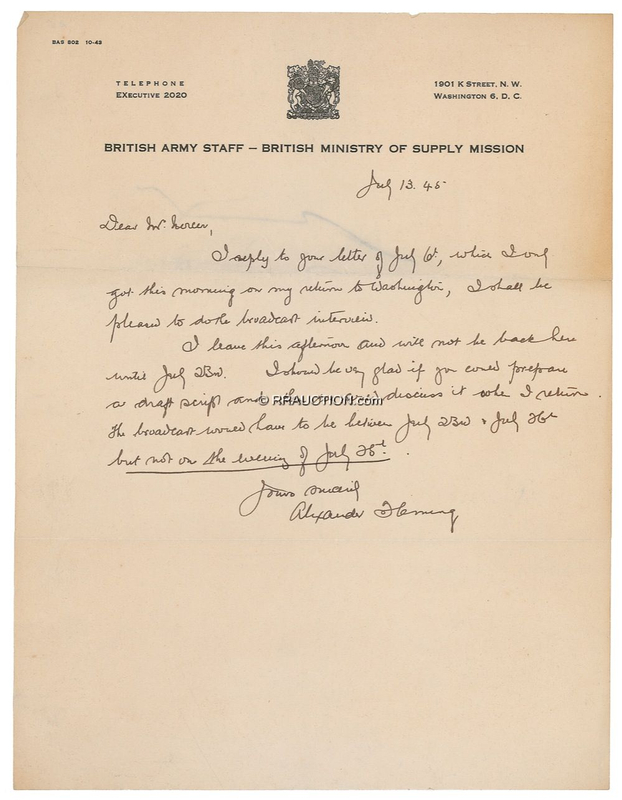 BAS 502 10-43
TELEPHONE
EXECUTIVE 2020
1901 K STREET, N. W.
WASHINGTON 6, D. C.
BRITISH ARMY STAFF — BRITISH MINISTRY OF SUPPLY MISSION
July 13. 45
Dear Mr.
I reply to your letter of July 6th, which I only
got this morning on my return to Washington, I shall be
pleased to do the broadcast interview.
I leave this afternoon and will not be back here
until July 23rd. I should be very glad if you could prepare
a draft script and discuss it when I return.
© RRAUCTION.com
The broadcast would have to be between July 23rd & July 26th
but not on the evening of July
Yours sincerely
Alexander Fleming